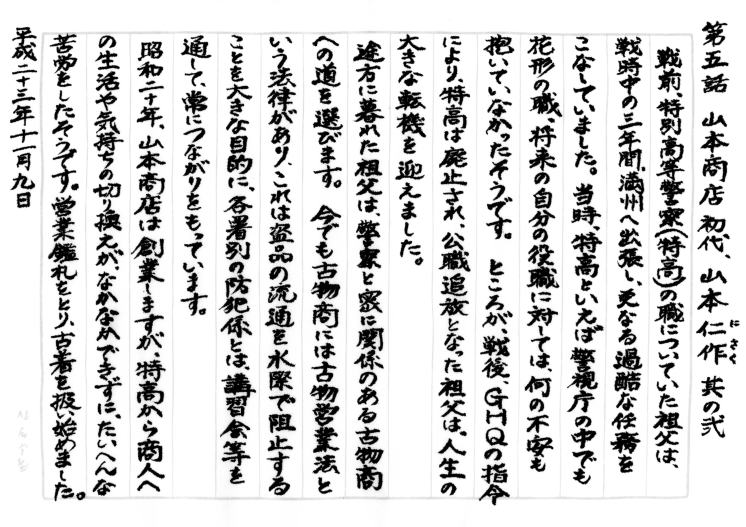 第五話　山本商店初代、山本仁作　其の弐
にさく
戦前、特別高等警察(特高)の職についていた祖父は、
戦時中の三年間、満州へ出張し、更なる過酷な任務を
こなしていました。当時、特高といえば警視庁の中でも
花形の職、将来の自分の役職に対しては、何の不安も
抱いていなかったそうです。　ところが、戦後、GHQの指令
により、特高は廃止され、公職追放となった祖父は、人生の
大きな転機を迎えました。
途方に暮れた祖父は、警察と密に関係のある古物商
への道を選びます。　今でも古物商には古物営業法と
いう法律があり、これは盗品の流通を水際で阻止する
ことを大きな目的に、各署別の防犯係とは、講習会等を
通して、常につながりをもっています。
昭和二十年、山本商店は創業しますが、特高から商人へ
の生活や気持ちの切り換えが、なかなかできずに、たいへんな
苦労をしたそうです。営業鑑札をとり、古着を扱い始めました。
平成二十三年十一月九日